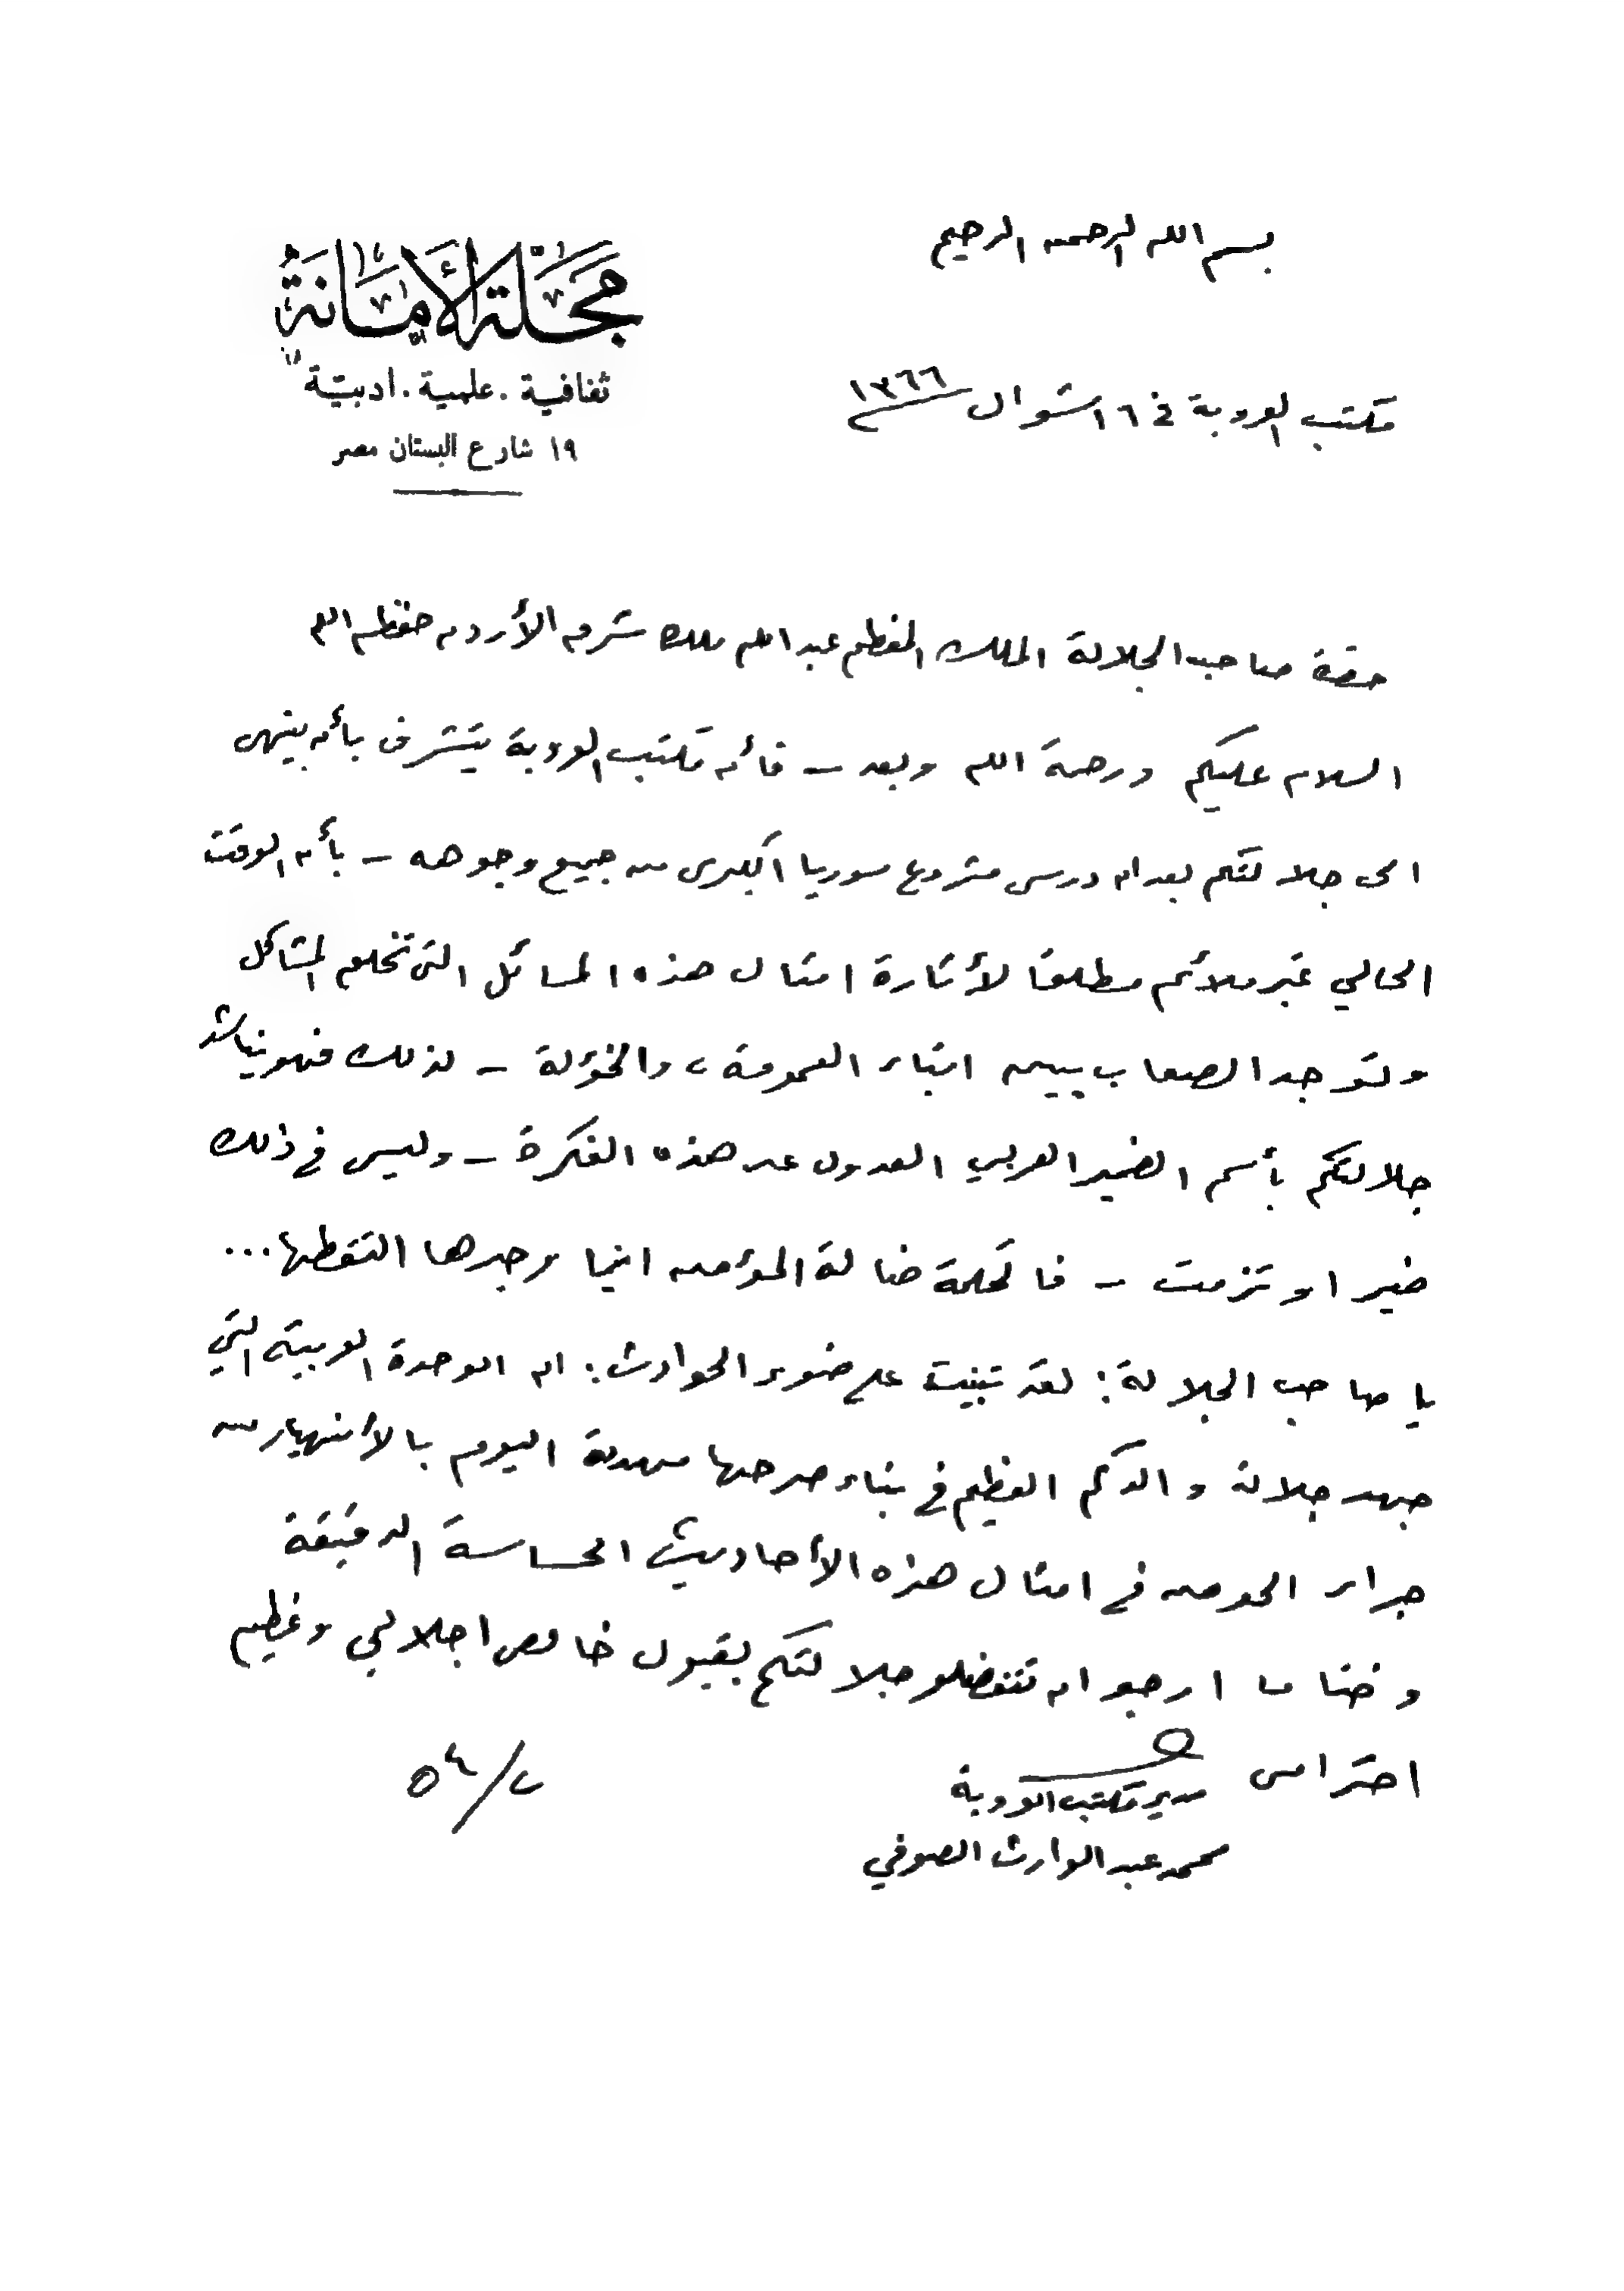 بسم الله الرحمن الرحيم
مجلة الأمانة
ثقافية . علمية . ادبية
١٩ شارع البستان مصر
مكتب العروبة في ١٦ شوال ١٣٦٦
حضرة صاحب الجلالة الملك المعظم عبد الله ملك شرق الأردن حفظه الله
السلام عليكم ورحمة الله وبعد – فأن مكتب العروبة يتشرف بأن ينهى
الى جلالتكم بعد ان درس مشروع سوريا الكبرى من جميع وجوهه – بأن الوقت
الحالي غير ملائم مطلقا لأثارة امثال هذه المسائل التى تخلق المشاكل
وتوجد الصعاب بين ابناء العمومة، والخؤلة – لذلك فهو يناشد
جلالتكم بأسم الضمير العربي العدول عن هذه الفكرة – وليس في ذلك
ضير او تزمت – فالحكمة ضالة المؤمن اينما وجدها التقطها...
يا صاحب الجلالة: لقد تبينت على ضوء الحوادث: ان الوحدة العربية التي
جهد جلالة والدكم العظيم في بناء صرحها مهددة اليوم بالأنهيار من
جراء الخوض في امثال هذه الأحاديث الحساسة الدقيقة
وختاما ارجو ان تتفضلو جلالتكم بقبول خالص اجلالي وعظيم
احترامى
مدير مكتب العروبة
محمد عبد الوارث الصوفي
٥٤/٧